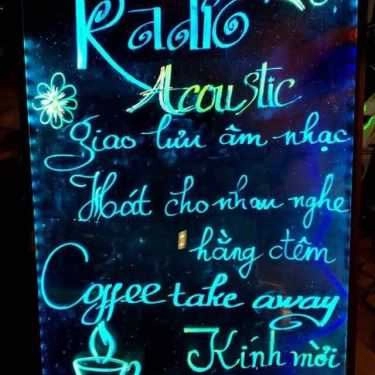 Radio
Acoustic
giao lưu âm nhạc
Hát cho nhau nghe
hằng đêm
Coffee take away
Kính mời